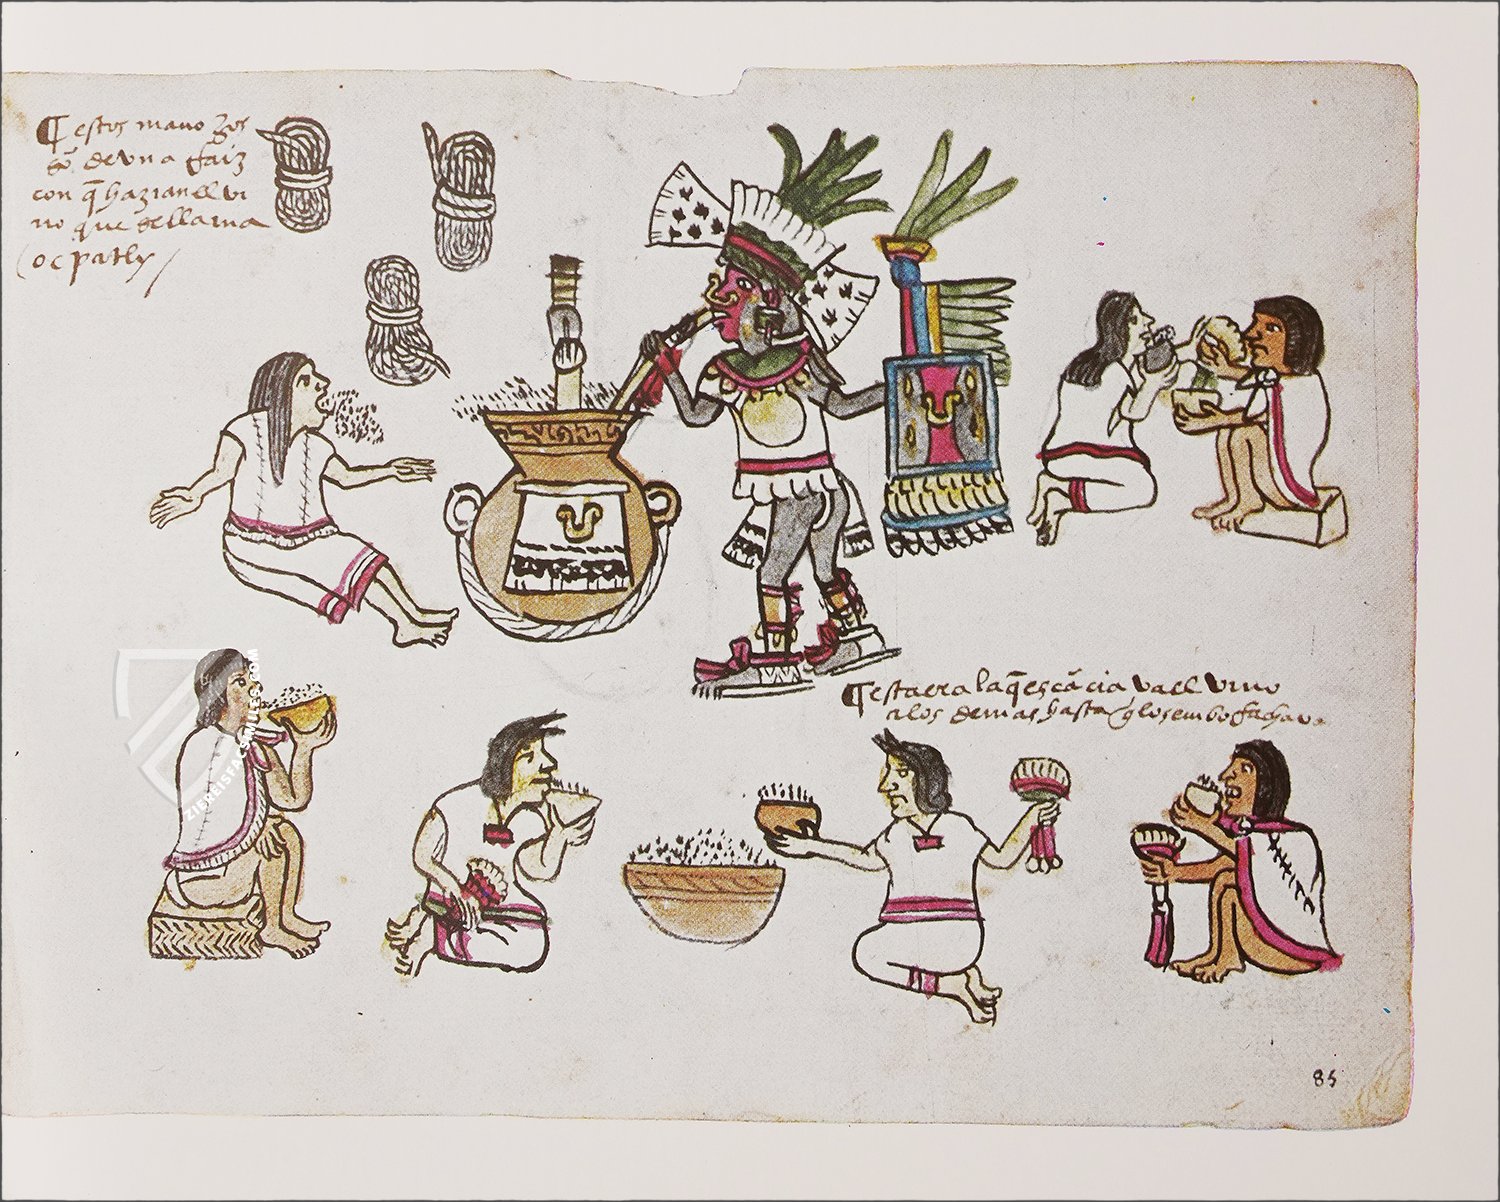 ¶ estos mano Jos
sō de vna Raiz
con q̄ hazian el vi
no que de llama
ocpatly
¶ esta era la q̄ escāciaua el vino
a los demas hasta q̄ los emborachaua
85
ZIEREISFACSIMILES.COM